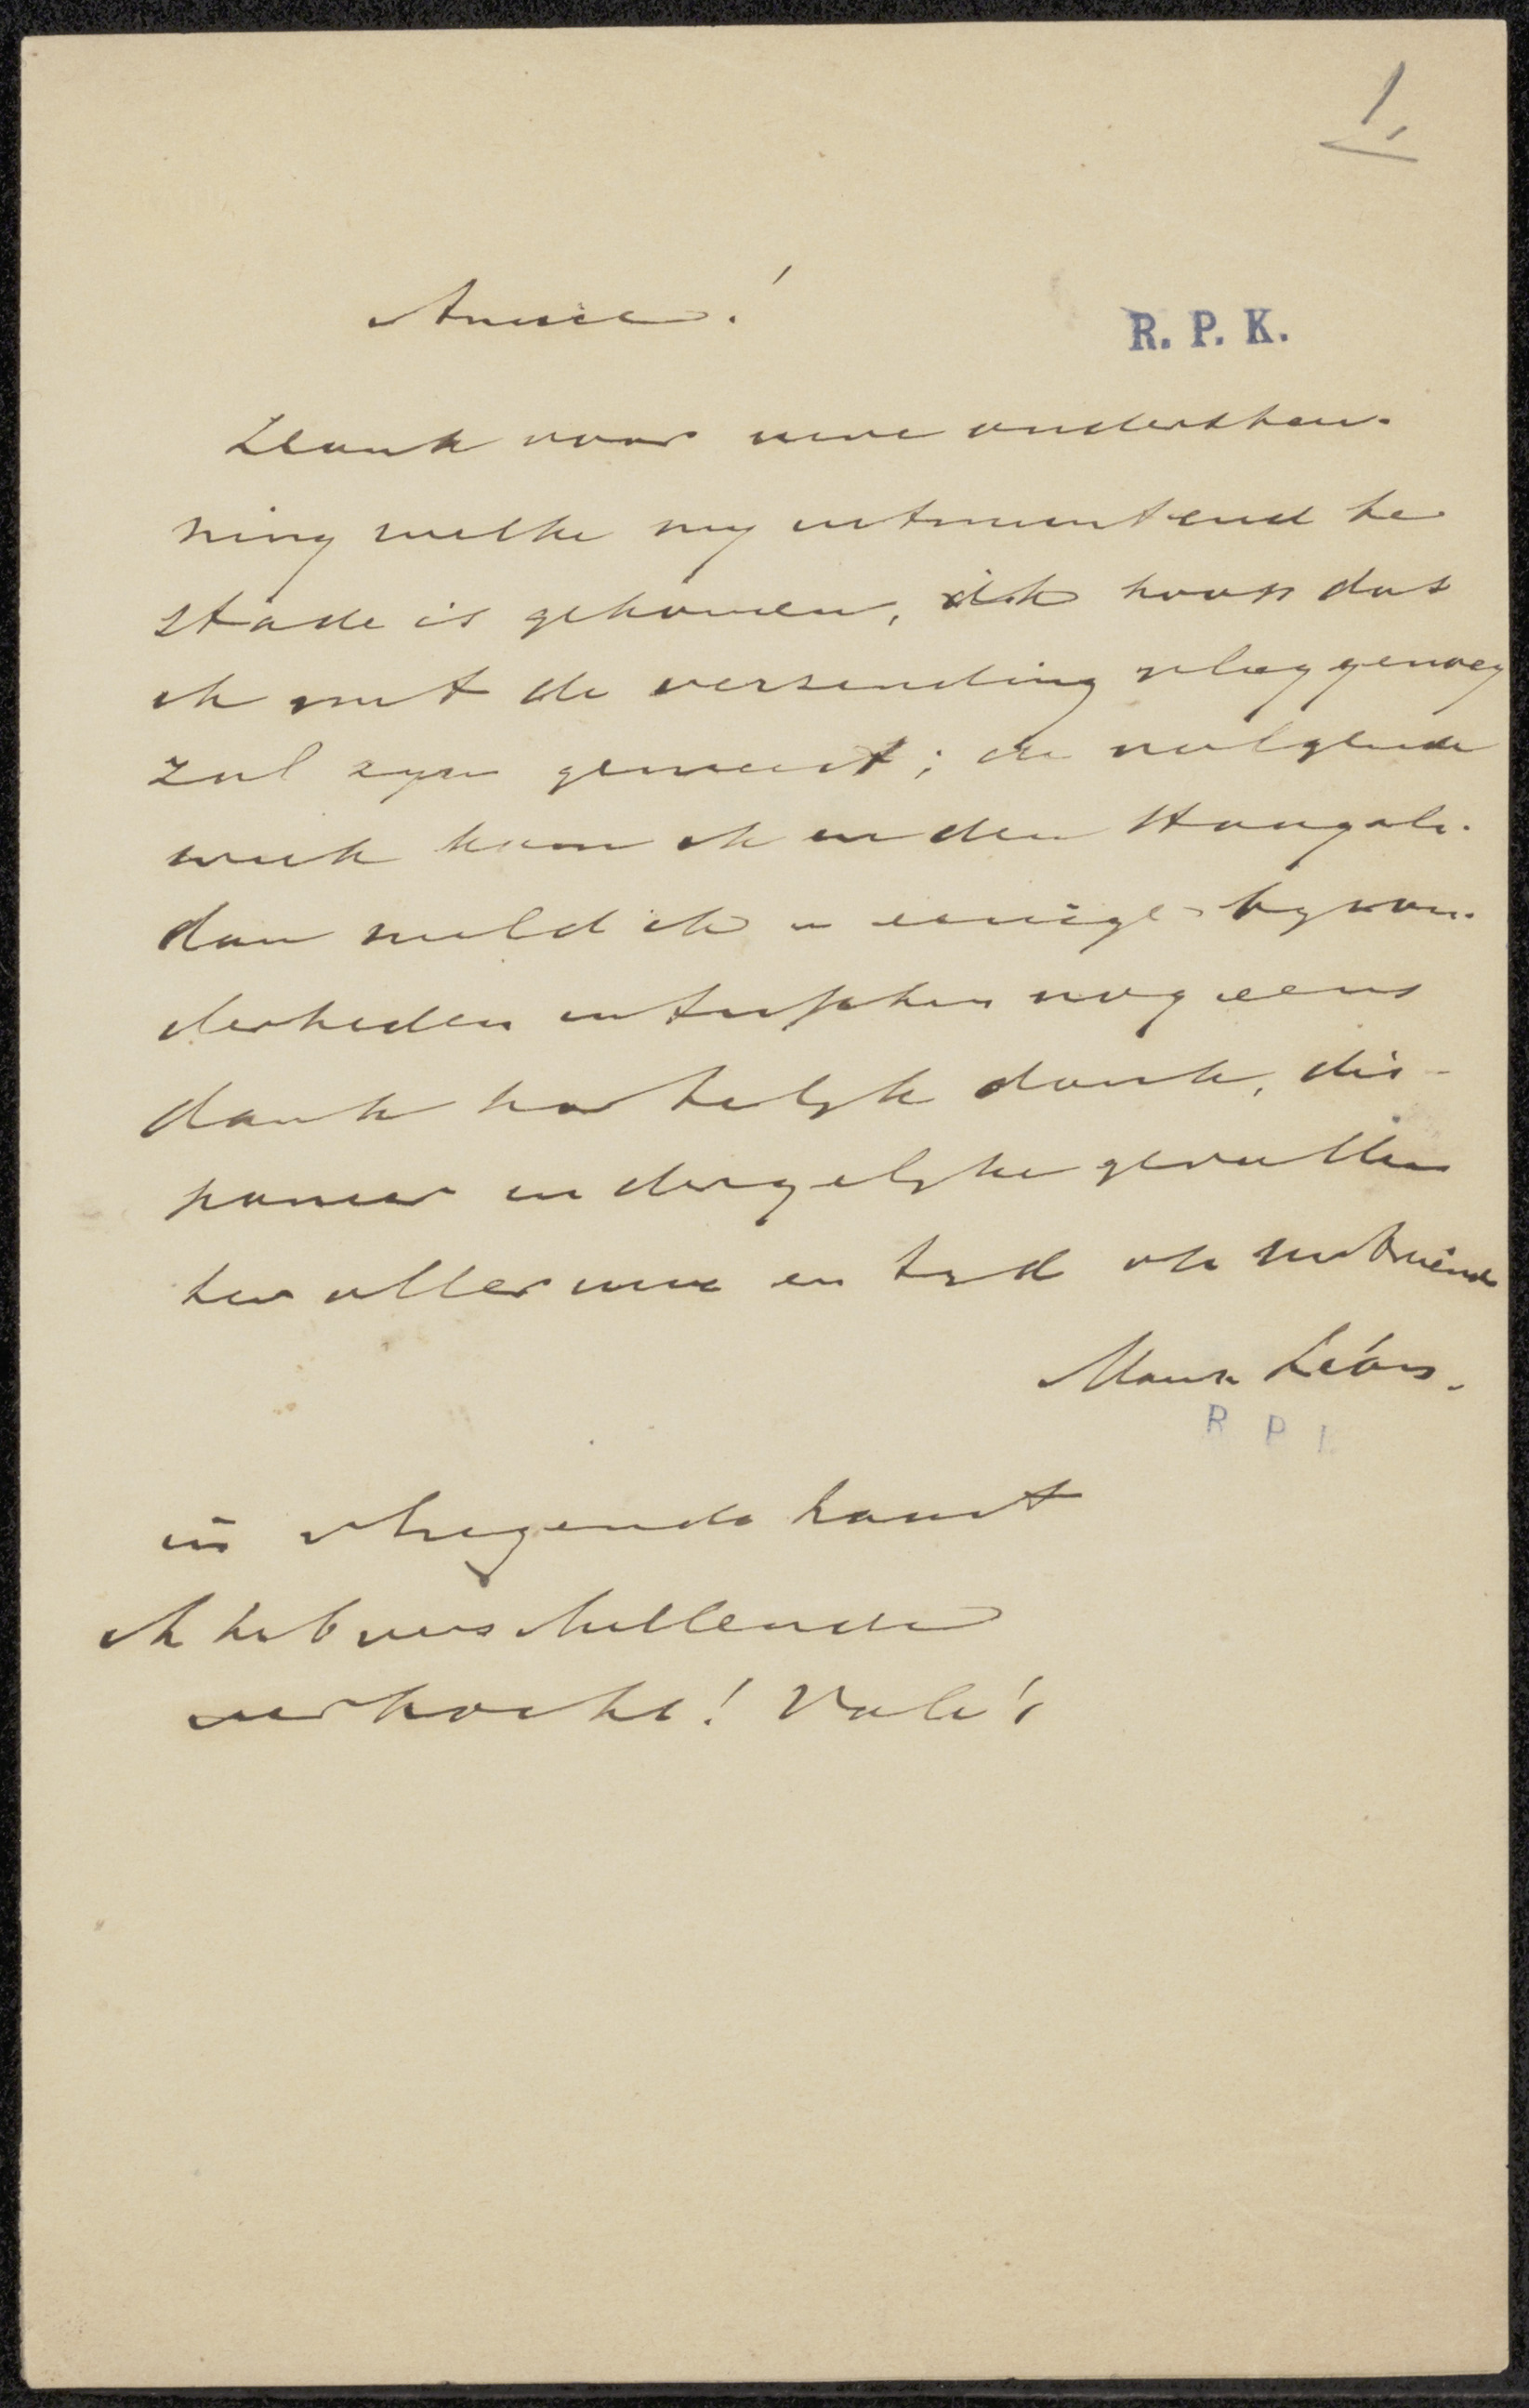 1.
Amice!
R. P. K.
Dank voor uwe ondersteu-
ning welke my uitmuntend te
stade is gekomen, ik hoop dat
ik met de verzending vlug genoeg
zal zyn geweest; de volgende
week kom ik in den Haag
dan meld ik u eenige byzon-
derheden intusschen nog eens
dank hartelyk dank, dis-
poneer in dergelyke gevallen
ten aller uure en tyd op uw vriend
Maur. Léon.
R P
in vliegende haast
ik heb verschillende
verkocht! Vale's